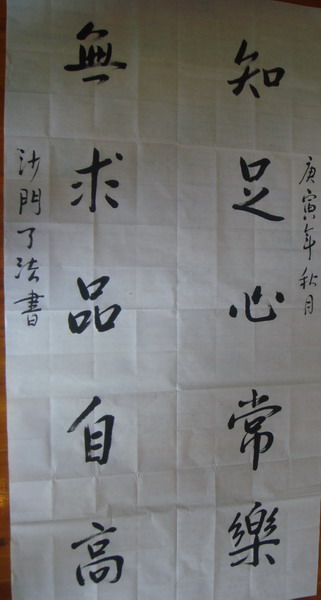 庚寅年秋月
知足心常樂
無求品自高
沙門了法書